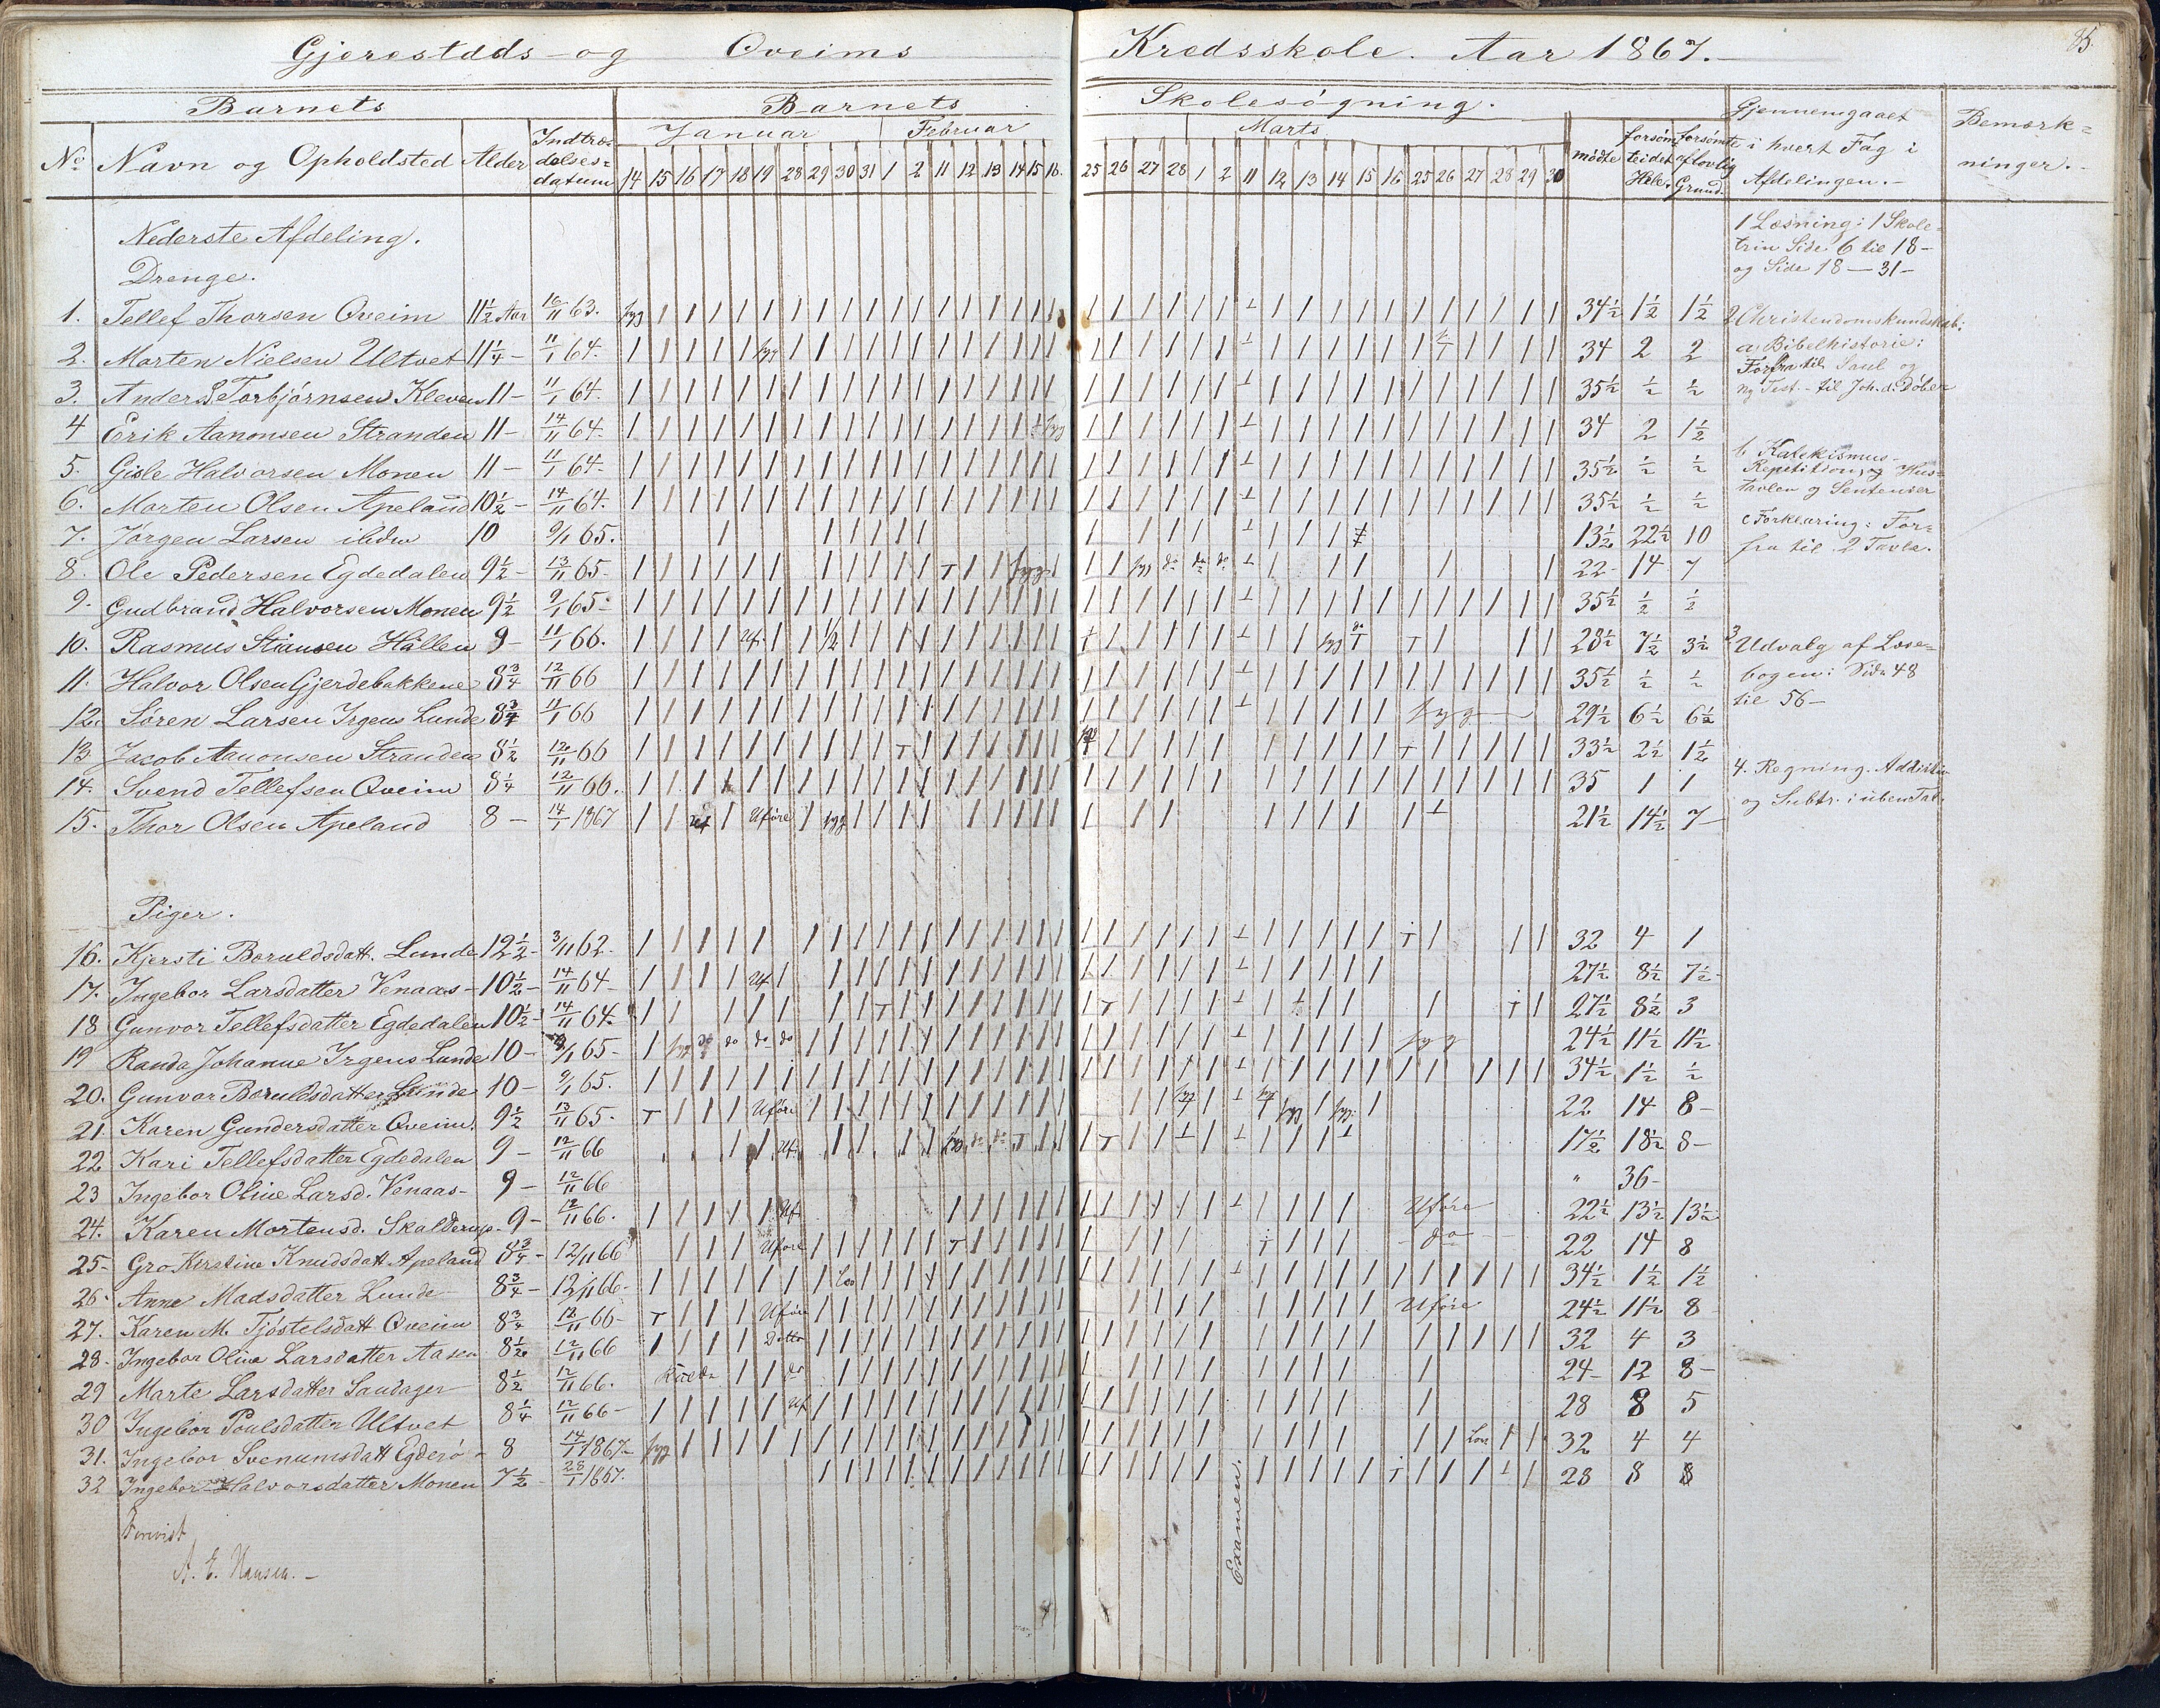 Gjerestads- og Oveims Kredsskole. Aar 1867.-
85.
Barnets Barnets Skolesøgning. Gjennemgaaet i hvert Fag i Afdelingen.- Bemærkninger.-
No. Navn og Opholdsted Alder Indtrædelsesdatum Januar Februar Marts mødte forsømte aflovlig Grund.
14 15 16 17 18 19 28 29 30 31 1 2 11 12 13 14 15 16. 25 26 27 28 1 2 11 12 13 14 15 16 25 26 27 28 29 30
Nederste Afdeling.
Drenge.
1. Tellef Thorsen Oveim 11½ Aar 16/11 63. syg 34½ 1½ 1½
2. Morten Nielsen Ultvet 11¼ - 11/1 64. syg 34 2 2
3. Anders Torbjørnsen Kleven 11 - 11/1 64. 35½ ½ ½
4 Erik Aanonsen Stranden 11 - 14/11 64. syg 34 2 1½
5. Gisle Halvorsen Monen 11 - 11/1 64- 35½ ½ ½
6. Morten Olsen Apeland 10½ - 14/11 64. 35½ ½ ½
7. Jørgen Larsen ibidm 10 9/1 65. 13½ 22½ 10
8. Ole Pedersen Egdedalen 9½ - 13/11 65- syg syg do do do 22- 14 7
9. Gudbrand Halvorsen Monen 9½ 9/1 65- 35½ ½ ½
10. Rasmus Stiansen Hållen 9 - 11/1 66. Uf. ½ syg do 28½ 7½ 3½
11. Halvor Olsen Gjerdebakkene 8¾ 12/11 66 35½ ½ ½
12. Søren Larsen Irgens Lunde 8¾ 11/1 66 syg 29½ 6½ 6½
13 Jacob Aanonsen Stranden 8½ 12/11 66 33½ 2½ 1½
14. Svend Tellefsen Oveim 8¼ 12/11 66. 35 1 1
15. Thor Olsen Apeland 8 - 14/1 1867 Uf Uføre syg 21½ 14½ 7-
Piger.
16. Kjersti Beruldsdatt. Lunde 12½ - 3/11 62. 32 4 1
17. Ingebor Larsdatter Venaas - 10½ - 14/11 64- Uf 27½ 8½ 7½
18 Gunvor Tellefsdatter Egdedalen 10½ - 14/11 64. 27½ 8½ 3
19 Randa Johanne Irgens Lunde 10 - 9/1 65- syg do do do do syg 24½ 11½ 11½
20. Gunvor Beruldsdatter Lunde 10 - 9/1 65. 34½ 1½ ½
21. Karen Gundersdatter Oveim. 9½ 13/11 65. Uføre syg syg syg syg 22 14 8-
22 Kari Tellefsdatter Egdedalen 9 - 12/11 66 Uf. syg do do 17½ 18½ 8-
23 Ingebor Oline Larsd. Venaas - 9 - 12/11 66 " 36-
24. Karen Mortensd. Skalderup. 9 - 12/11 66. Uf. Uføre 22½ 13½ 13½
25- Gro Kirstine Knudsdatt Apeland 8¾ - 12/11 66 Uføre do 22 14 8
26. Anne Madsdatter Lunde 8¾ - 12/11 66- Lov 34½ 1½ 1½
27. Karen M. Tjøstelsdatt Oveim 8¾ 12/11 66- Uføre Uføre 24½ 11½ 8
28. Ingebor Oline Larsdatter Aasen 8½ 12/11 66 Ditto 32 4 3
29 Marte Larsdatter Saudager 8½ 12/11 66. Kulde do 24- 12 8-
30 Ingebor Poulsdatter Ultvet 8¼ 12/11 66- Uf 28 8 5
31. Ingebor Svenumsdatt Egderø - 8 14/1 1867- syg Lov 32 4 4
32 Ingebor Halvorsdatter Monen 7½ - 28/1 1867. 28 8 8
A. E. Hansen. -
Examen.
1 Læsning: 1 Skole=
trin Side 6 til 18-
og Side 18 - 31-
2 Christendomskundskab:
a Bibelhistorie:
Forfra til Saul og
ny Test.- til Joh. d. Døber
b Katekismus-
Repetition, og Hus=
tavlen og Sentenser
c Forklaring: For=
fra til 2 Tavla.
3 Udvalg af Læse=
bogen: Side 48
til 56-
4. Regning. Addition
og Subtr. i uben. Tal.